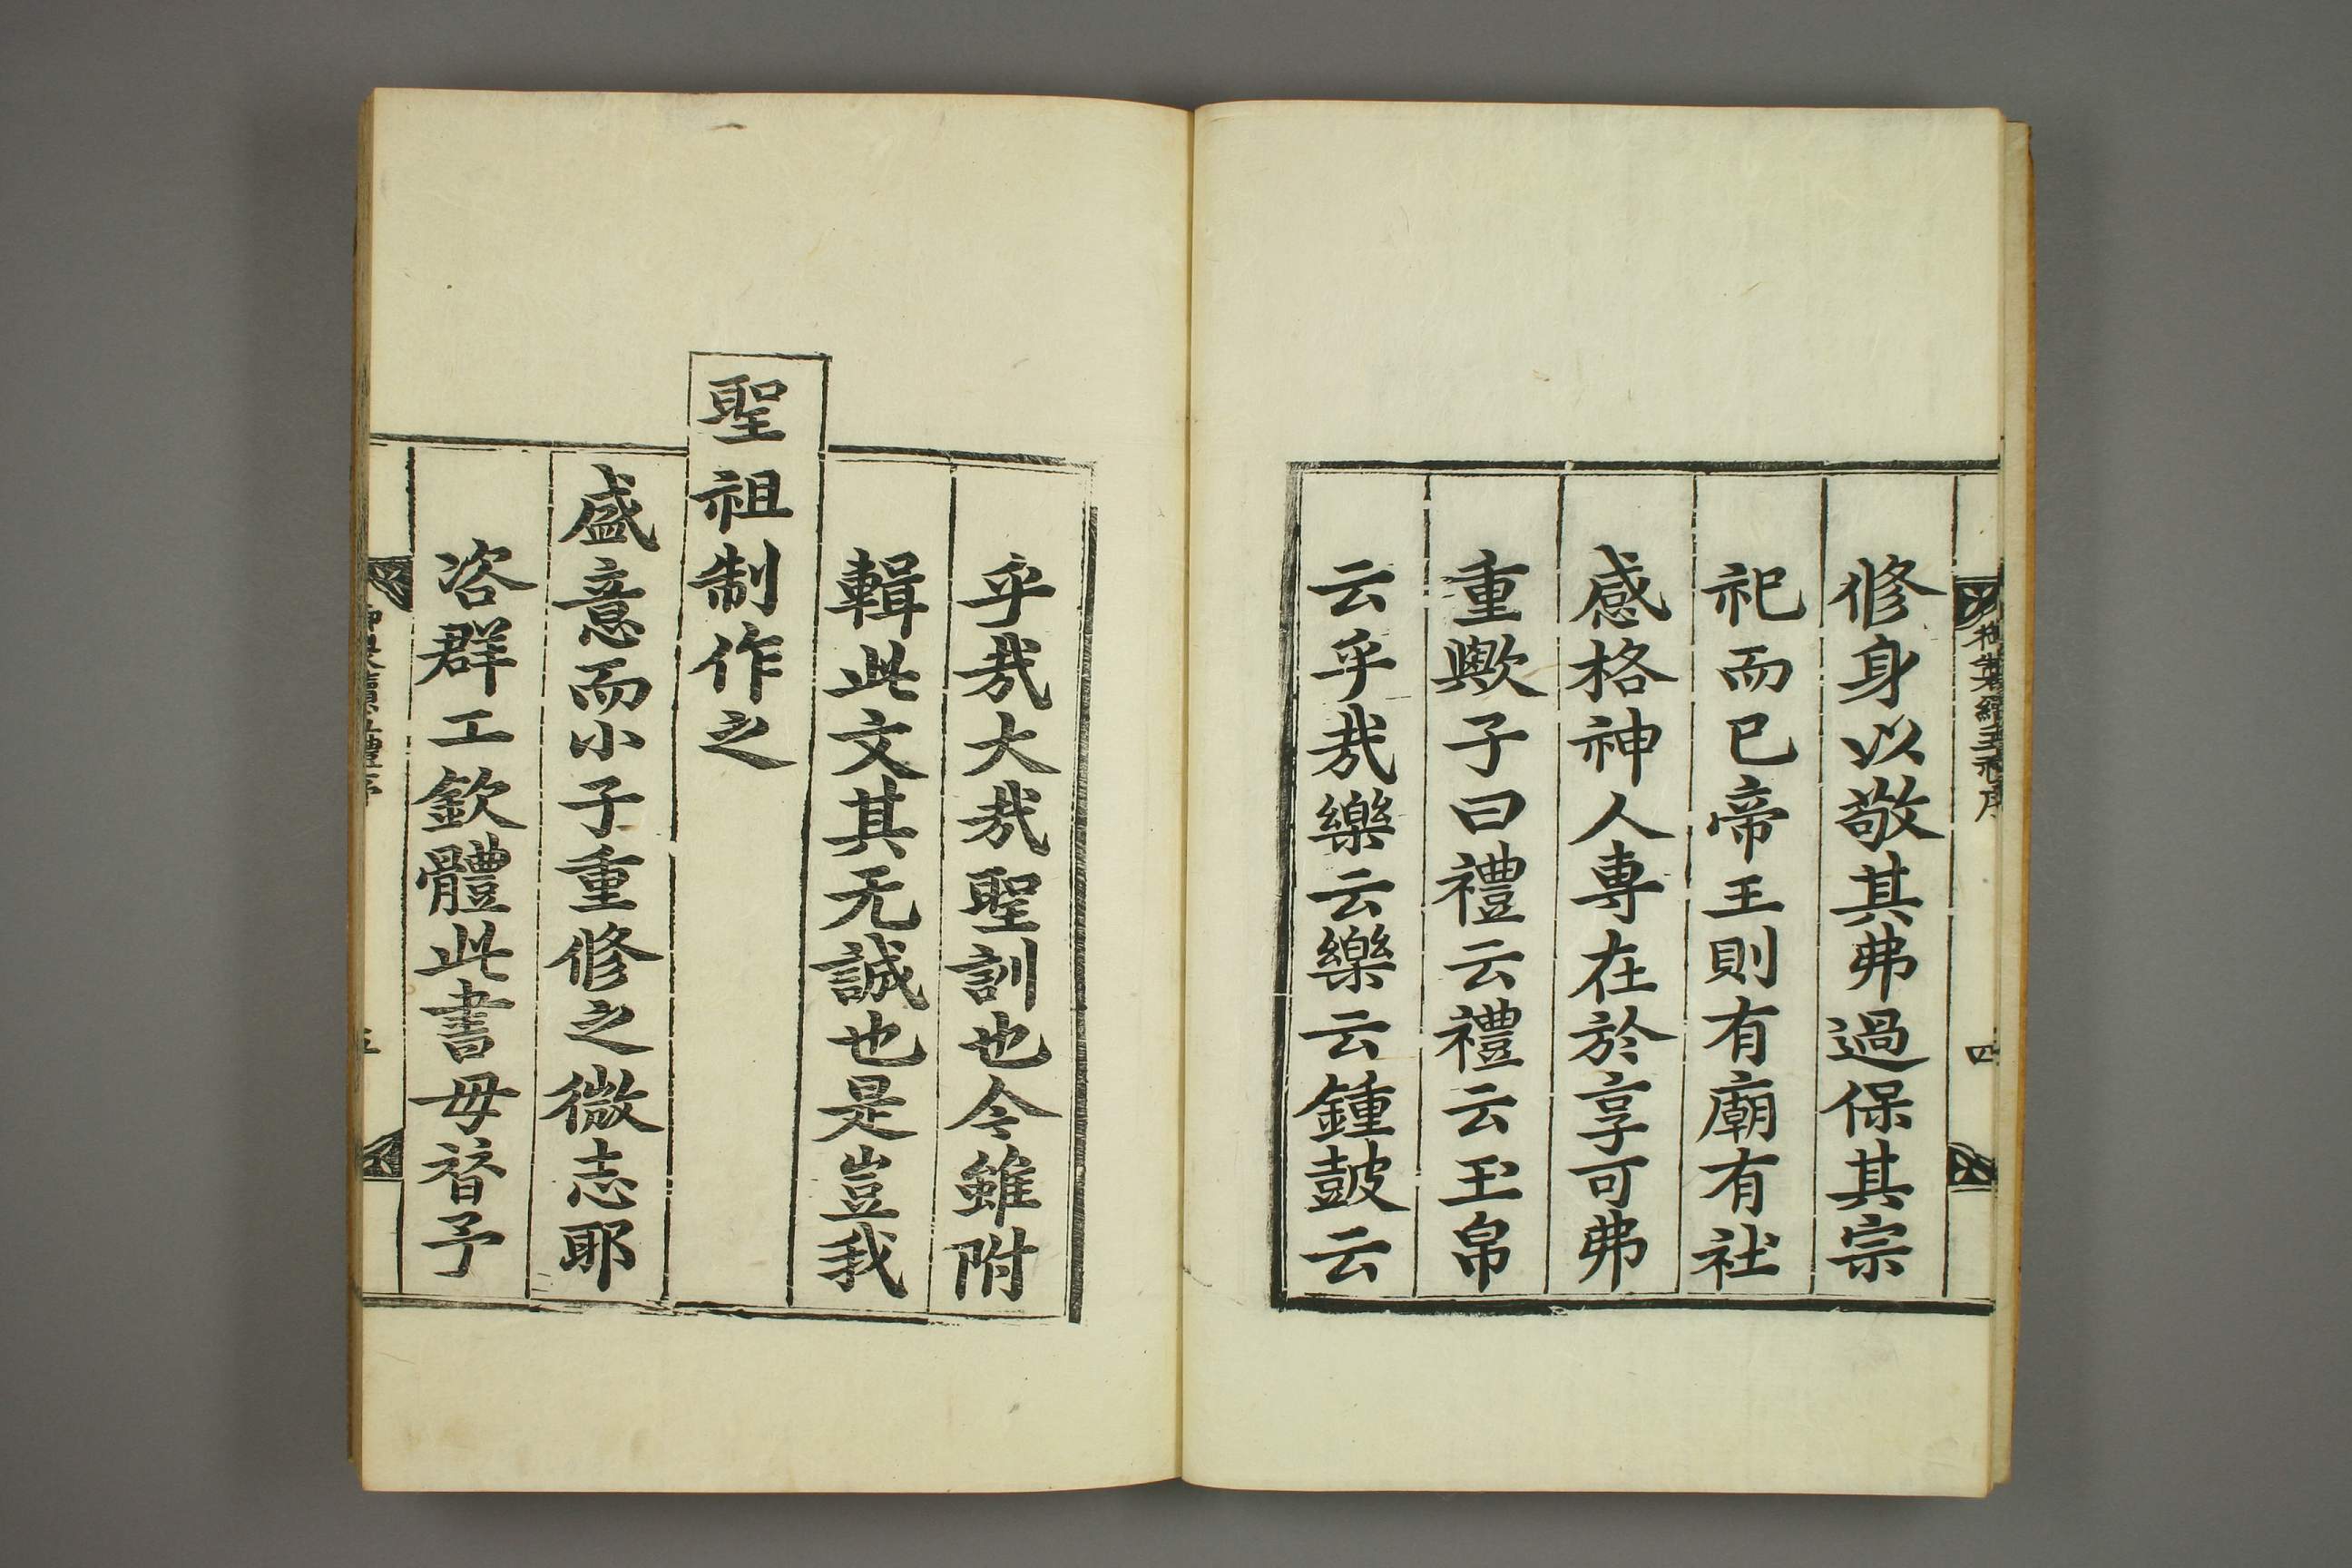 修身以敬其弗過保其宗
祀而已帝王則有廟有社
感格神人專在於享可弗
重歟子曰禮云禮云玉帛
云乎㢤樂云樂云鍾皷云
乎㢤大㢤聖訓也今雖附
輯此文其无誠也是豈我
聖祖制作之
盛意而小子重修之微志耶
咨群工欽體此書毋替予
四